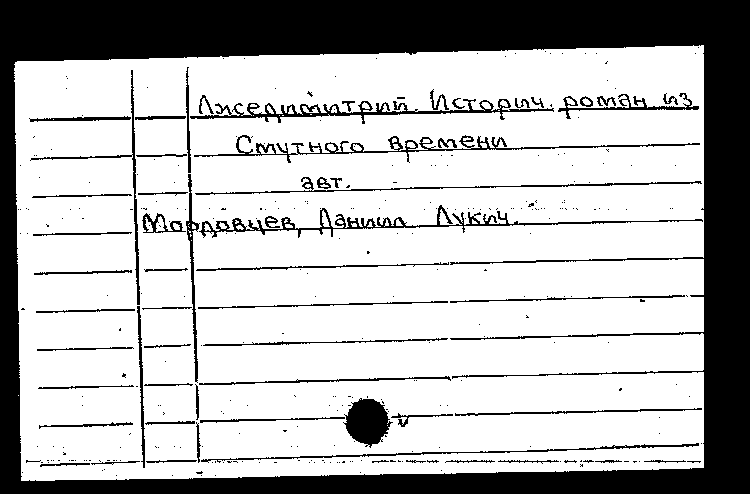 Лжедимитрий. Историч. роман из
Смутного времени
авт.
Мордовцев, Даниил Лукич.
v